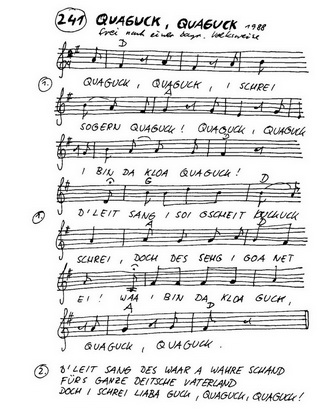 241 QUAGUCK, QUAGUCK 1988
frei nach einer bayr. Volksweise
D
1. QUAGUCK, QUAGUCK, I SCHREI
A
SOGERN QUAGUCK! QUAGUCK, QUAGUCK
D
I BIN DA KLOA QUAGUCK!
G D
1. D'LEIT SANG I SOI GSCHEIT
A D
SCHREI, DOCH DES SEHG I GOA NET
EI! WAA I BIN DA KLOA GUCK,
A D
QUAGUCK, QUAGUCK.
2. D'LEIT SANG DES WAAR A WAHRE SCHAND
FÜRS GANZE DEITSCHE VATERLAND
DOCH I SCHREI LIABA GUCK, QUAGUCK, QUAGUCK!